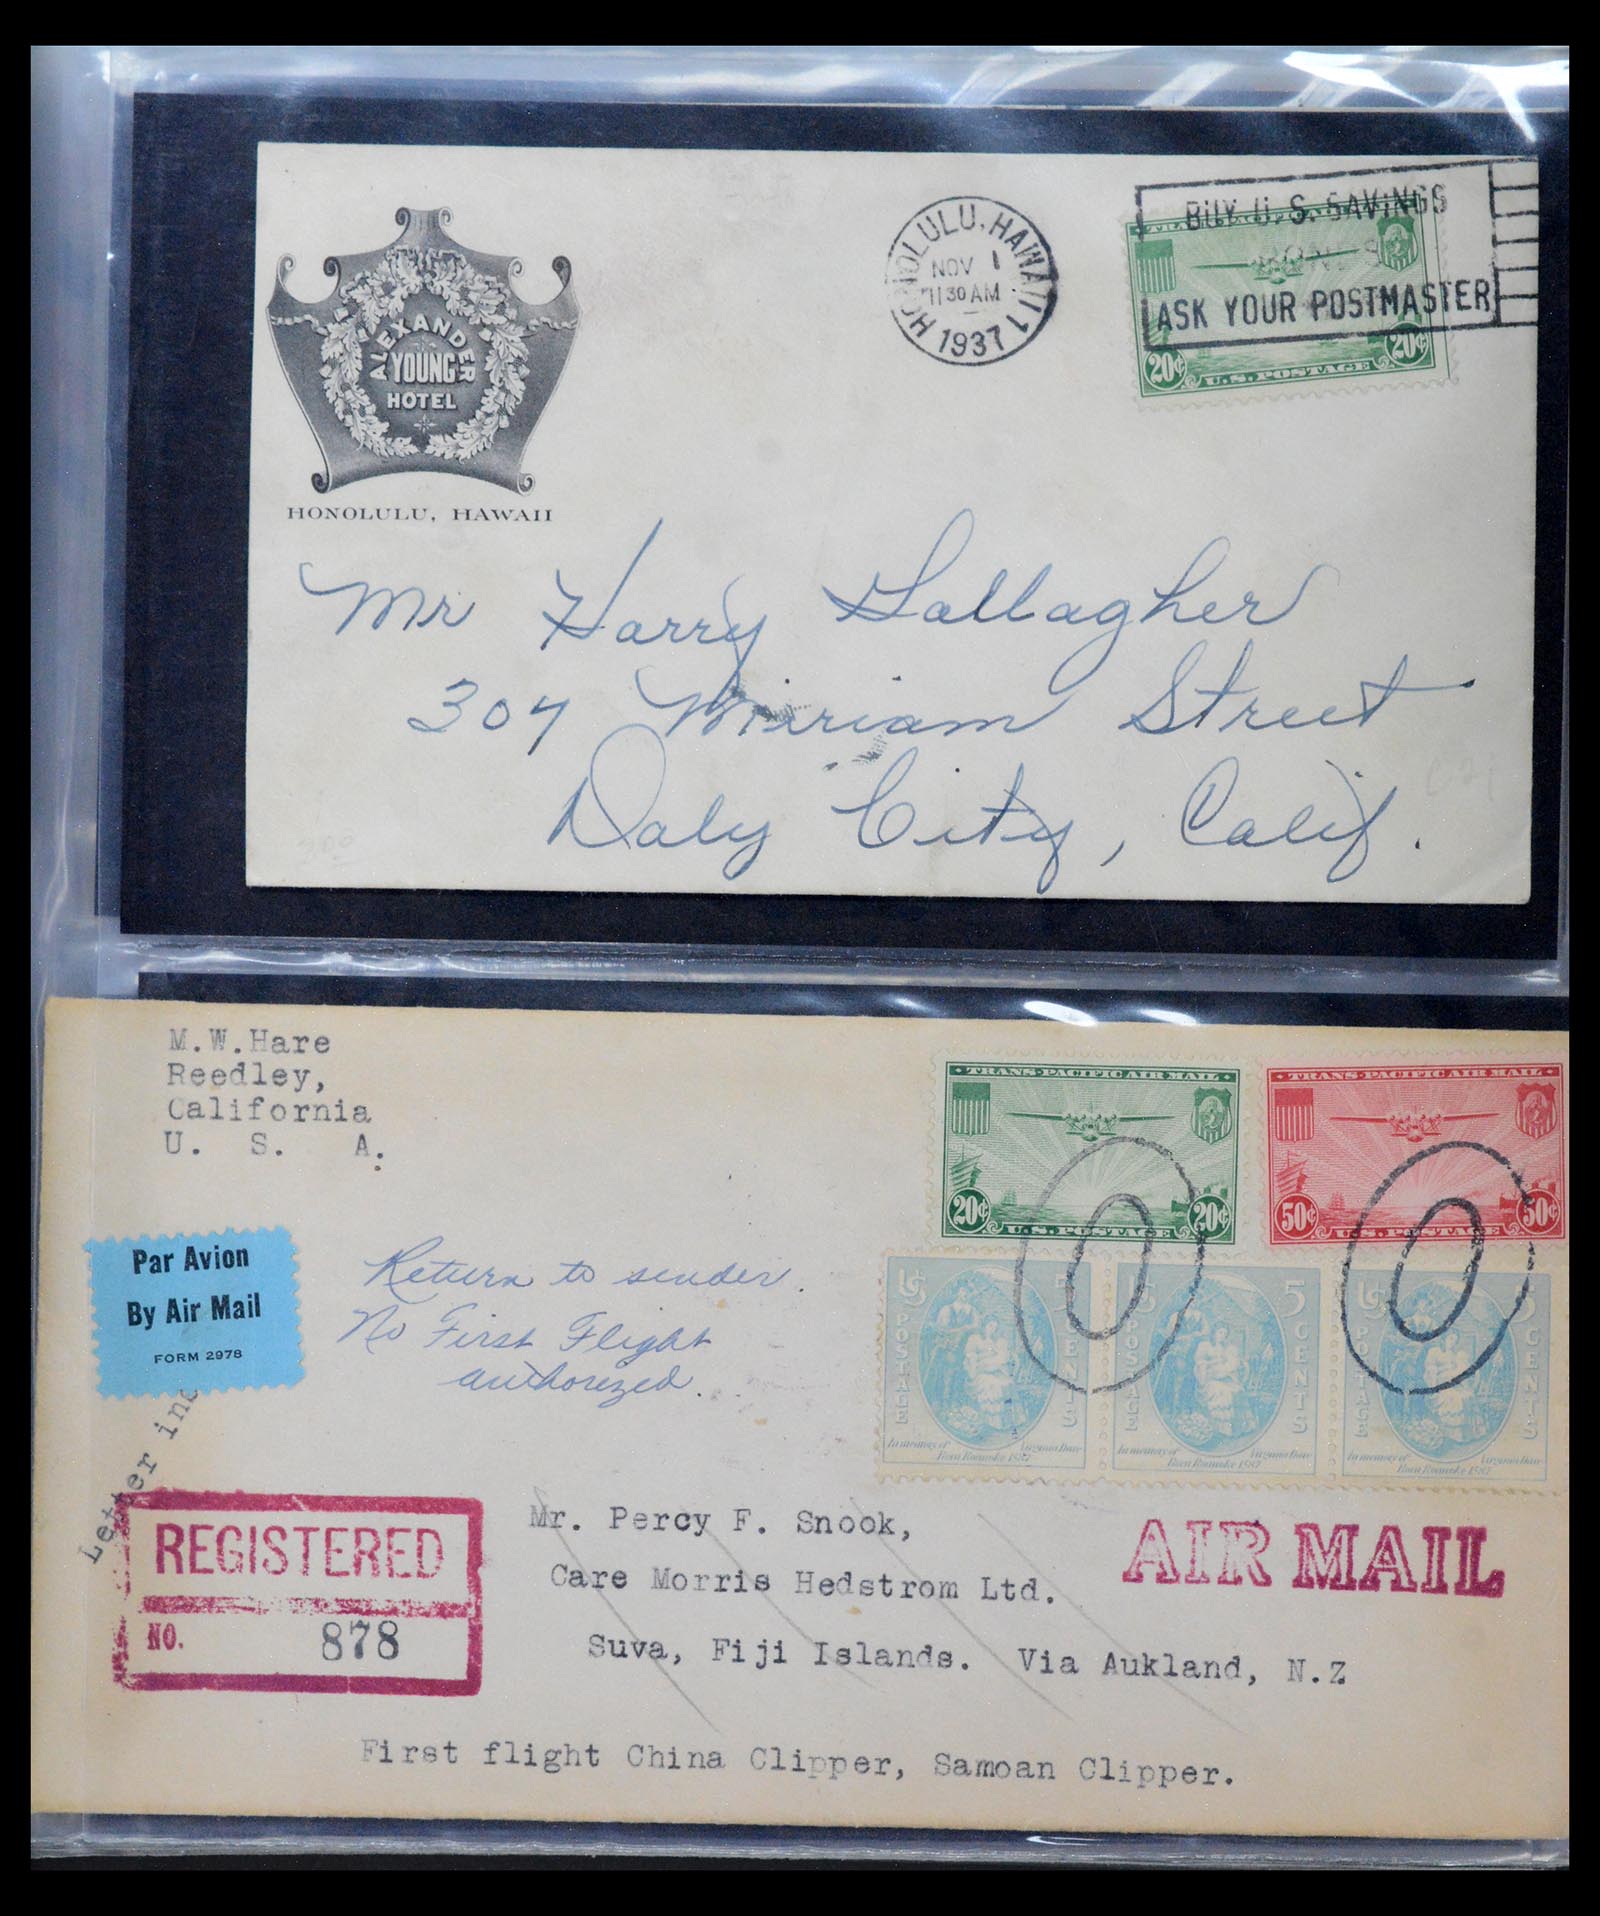 ALEXANDER
YOUNG
HOTEL
HONOLULU, HAWAII
HONOLULU, HAWAII 1
NOV 1
11 30 AM
1937
BUY U. S. SAVINGS
BONDS
ASK YOUR POSTMASTER
20¢ 20¢
U.S. POSTAGE
Mr Harry Gallagher
307 Mirriam Street
Daly City, Calif.
C21
300
M.W.Hare
Reedley,
California
U. S. A.
TRANS-PACIFIC AIR MAIL
20¢ 20¢
U.S. POSTAGE
TRANS-PACIFIC AIR MAIL
50¢ 50¢
U.S. POSTAGE
Par Avion
By Air Mail
FORM 2978
Return to sender.
No First Flight
authorized.
US POSTAGE 5 CENTS
In memory of Virginia Dare
Born Roanoke 1587
US POSTAGE 5 CENTS
In memory of Virginia Dare
Born Roanoke 1587
US POSTAGE 5 CENTS
In memory of Virginia Dare
Born Roanoke 1587
Letter
REGISTERED
NO. 878
Mr. Percy F. Snook,
Care Morris Hedstrom Ltd.
Suva, Fiji Islands. Via Aukland, N.Z
AIR MAIL
First flight China Clipper, Samoan Clipper.